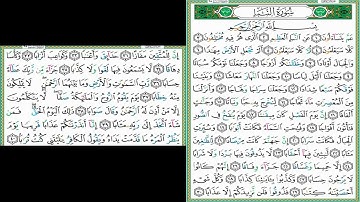 سُورَةُ النَّبَإِ
بِسْمِ اللَّهِ الرَّحْمَٰنِ الرَّحِيمِ
عَمَّ يَتَسَاءَلُونَ ١ عَنِ النَّبَإِ الْعَظِيمِ ٢ الَّذِي هُمْ فِيهِ مُخْتَلِفُونَ ٣
كَلَّا سَيَعْلَمُونَ ٤ ثُمَّ كَلَّا سَيَعْلَمُونَ ٥ أَلَمْ نَجْعَلِ الْأَرْضَ مِهَادًا ٦
وَالْجِبَالَ أَوْتَادًا ٧ وَخَلَقْنَاكُمْ أَزْوَاجًا ٨ وَجَعَلْنَا نَوْمَكُمْ سُبَاتًا ٩
وَجَعَلْنَا اللَّيْلَ لِبَاسًا ١٠ وَجَعَلْنَا النَّهَارَ مَعَاشًا ١١ وَبَنَيْنَا فَوْقَكُمْ
سَبْعًا شِدَادًا ١٢ وَجَعَلْنَا سِرَاجًا وَهَّاجًا ١٣ وَأَنْزَلْنَا مِنَ
الْمُعْصِرَاتِ مَاءً ثَجَّاجًا ١٤ لِنُخْرِجَ بِهِ حَبًّا وَنَبَاتًا ١٥ وَجَنَّاتٍ
أَلْفَافًا ١٦ إِنَّ يَوْمَ الْفَصْلِ كَانَ مِيقَاتًا ١٧ يَوْمَ يُنْفَخُ فِي الصُّورِ
فَتَأْتُونَ أَفْوَاجًا ١٨ وَفُتِحَتِ السَّمَاءُ فَكَانَتْ أَبْوَابًا ١٩ وَسُيِّرَتِ
الْجِبَالُ فَكَانَتْ سَرَابًا ٢٠ إِنَّ جَهَنَّمَ كَانَتْ مِرْصَادًا ٢١ لِلطَّاغِينَ
مَآبًا ٢٢ لَابِثِينَ فِيهَا أَحْقَابًا ٢٣ لَا يَذُوقُونَ فِيهَا بَرْدًا وَلَا شَرَابًا
٢٤ إِلَّا حَمِيمًا وَغَسَّاقًا ٢٥ جَزَاءً وِفَاقًا ٢٦ إِنَّهُمْ كَانُوا
لَا يَرْجُونَ حِسَابًا ٢٧ وَكَذَّبُوا بِآيَاتِنَا كِذَّابًا ٢٨ وَكُلَّ شَيْءٍ
أَحْصَيْنَاهُ كِتَابًا ٢٩ فَذُوقُوا فَلَنْ نَزِيدَكُمْ إِلَّا عَذَابًا ٣٠
إِنَّ لِلْمُتَّقِينَ مَفَازًا ٣١ حَدَائِقَ وَأَعْنَابًا ٣٢ وَكَوَاعِبَ أَتْرَابًا ٣٣ وَكَأْسًا
دِهَاقًا ٣٤ لَا يَسْمَعُونَ فِيهَا لَغْوًا وَلَا كِذَّابًا ٣٥ جَزَاءً مِنْ رَبِّكَ عَطَاءً
حِسَابًا ٣٦ رَبِّ السَّمَاوَاتِ وَالْأَرْضِ وَمَا بَيْنَهُمَا الرَّحْمَٰنِ لَا يَمْلِكُونَ
مِنْهُ خِطَابًا ٣٧ يَوْمَ يَقُومُ الرُّوحُ وَالْمَلَائِكَةُ صَفًّا لَا يَتَكَلَّمُونَ
إِلَّا مَنْ أَذِنَ لَهُ الرَّحْمَٰنُ وَقَالَ صَوَابًا ٣٨ ذَٰلِكَ الْيَوْمُ الْحَقُّ فَمَنْ
شَاءَ اتَّخَذَ إِلَىٰ رَبِّهِ مَآبًا ٣٩ إِنَّا أَنْذَرْنَاكُمْ عَذَابًا قَرِيبًا يَوْمَ
يَنْظُرُ الْمَرْءُ مَا قَدَّمَتْ يَدَاهُ وَيَقُولُ الْكَافِرُ يَا لَيْتَنِي كُنْتُ تُرَابًا ٤٠